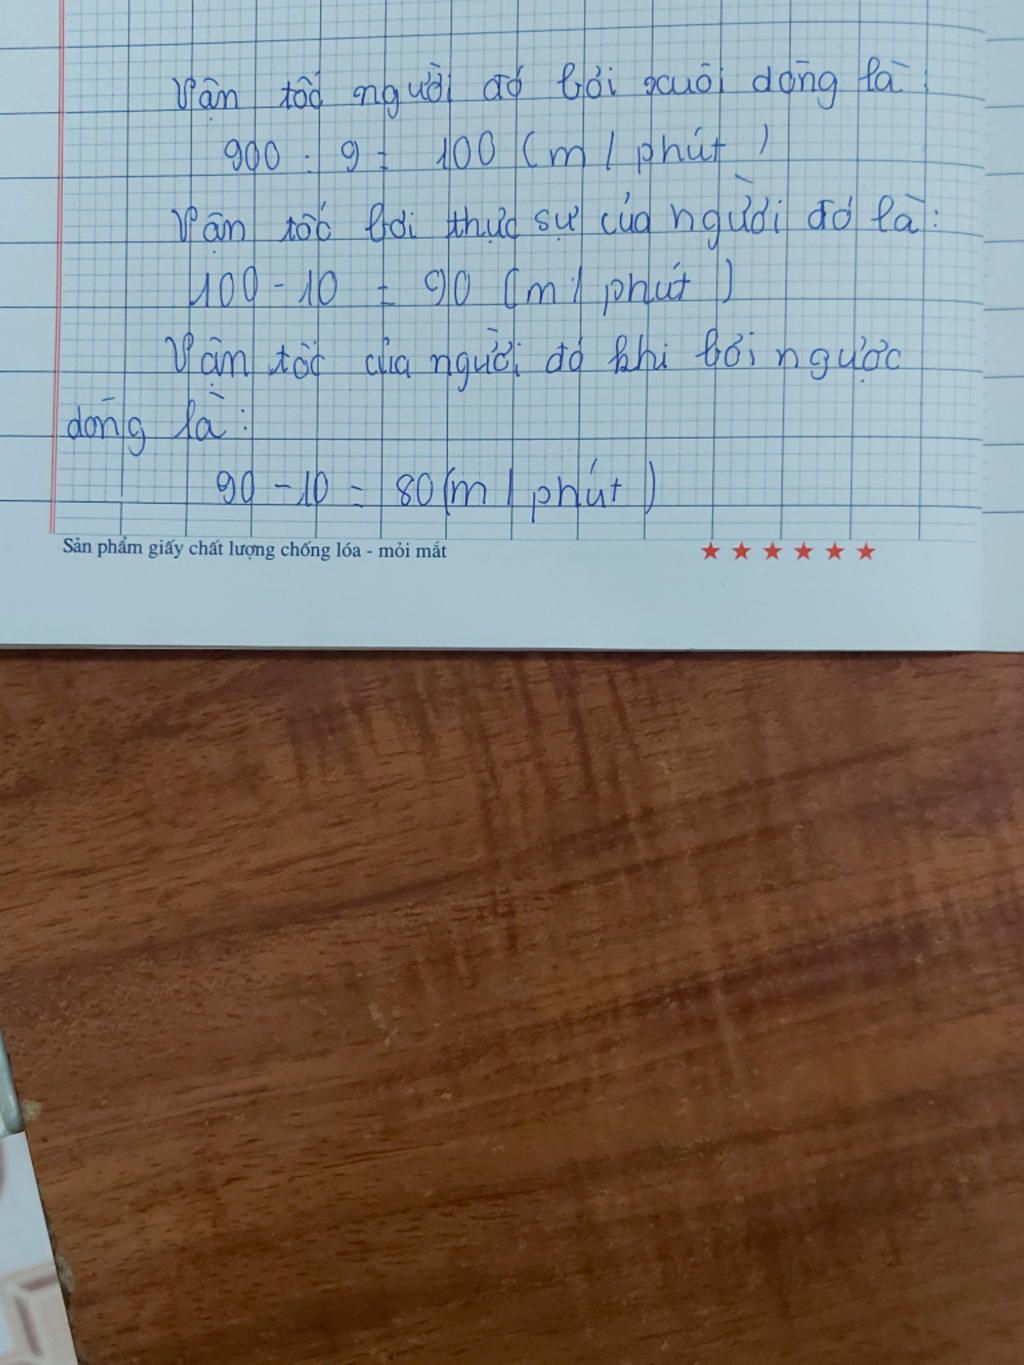 Vận tốc người đó bơi xuôi dòng là:
900 : 9 = 100 (m/phút)
Vận tốc bơi thực sự của người đó là:
100 - 10 = 90 (m/phút)
Vận tốc của người đó khi bơi ngược
dòng là:
90 - 10 = 80 (m/phút)
Sản phẩm giấy chất lượng chống lóa - mỏi mắt